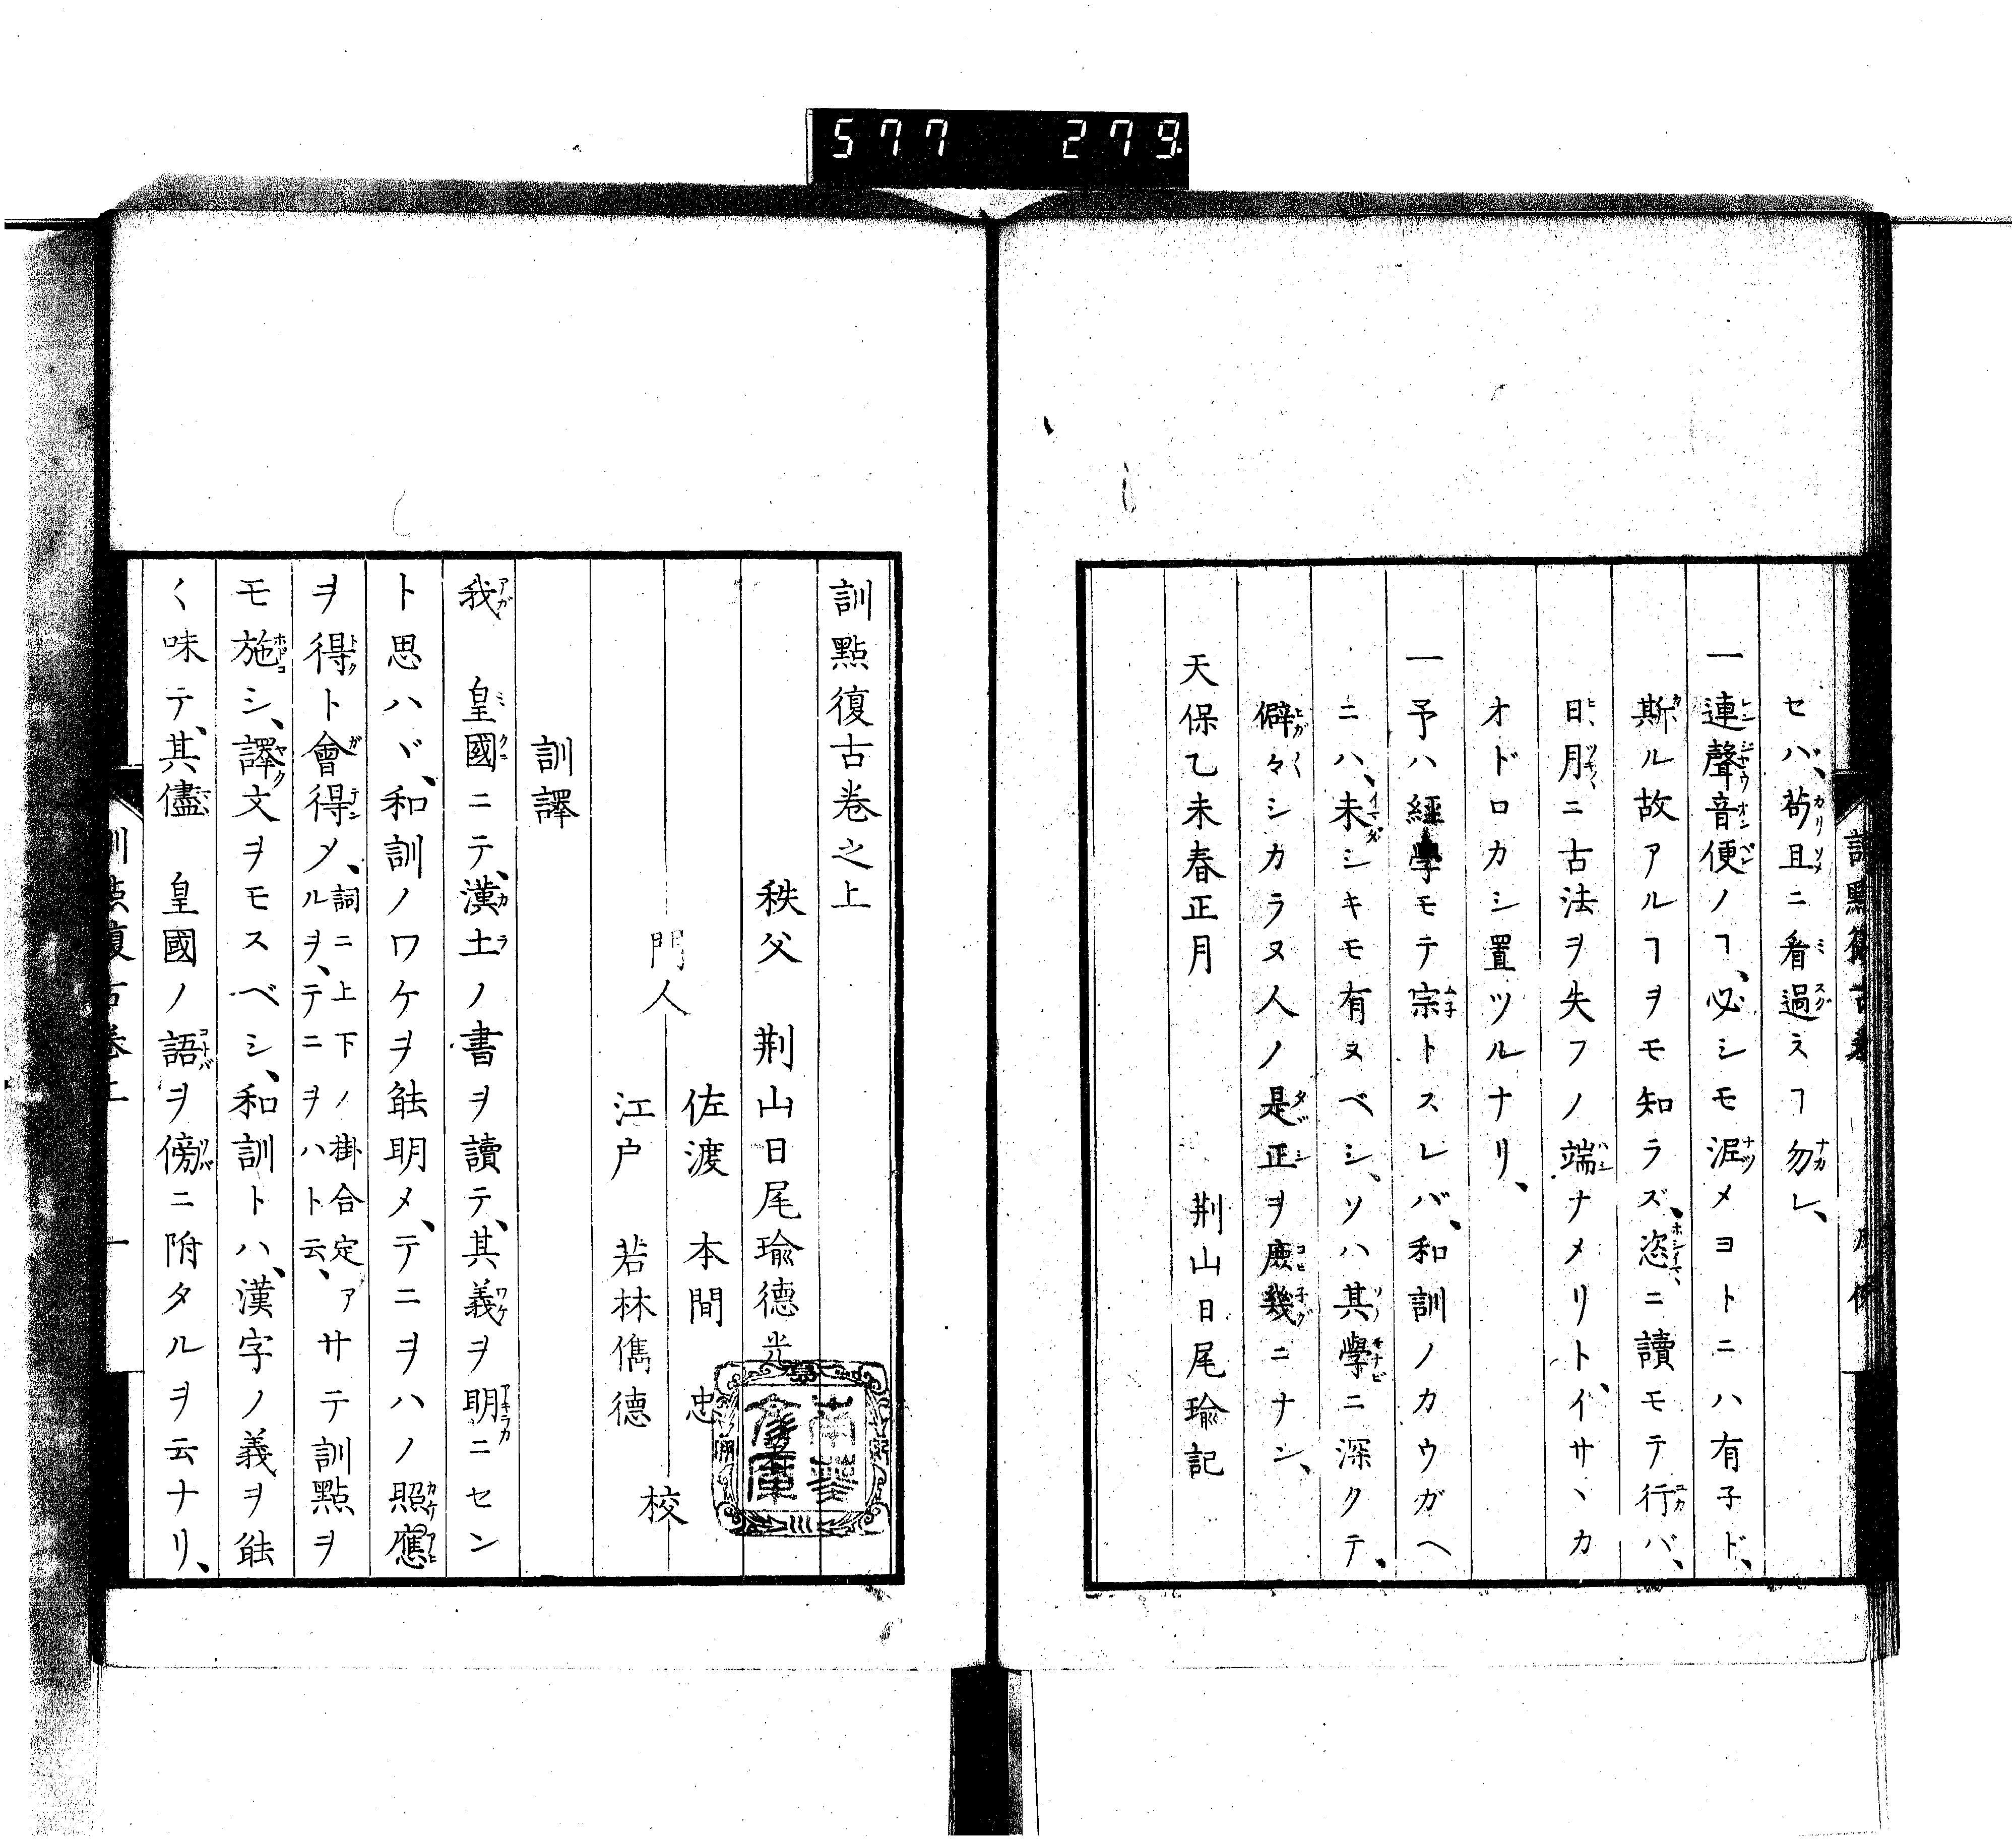 577 279
セバ、苟且ニ看過スヿ勿レ、
一連聲音便ノヿ、必シモ泥メヨトニハ有子ド、
斯ル故アルヿヲモ知ラズ、恣ニ讀モテ行バ、
日月ニ古法ヲ失フノ端ナメリト、イサヽカ
オドロカシ置ツルナリ、
一予ハ經學モテ宗トスレバ、和訓ノカウガヘ
ニハ、未シキモ有ヌベシ、ソハ其學ニ深クテ、
僻々シカラヌ人ノ是正ヲ庶幾ニナン、
天保乙未春正月 荆山日尾瑜記
訓點復古卷之上
秩父 荆山日尾瑜德光
門人 佐渡 本間 忠
江戸 若林儁德 校
訓譯
我 皇國ニテ、漢土ノ書ヲ讀テ、其義ヲ明ニセン
ト思ハヾ、和訓ノワケヲ能明メ、テニヲハノ照應
ヲ得ト會得メ、詞ニ上下ノ掛合定アルヲ、テニヲハト云、サテ訓點ヲ
モ施シ、譯文ヲモスベシ、和訓トハ、漢字ノ義ヲ能
く味テ、其儘 皇國ノ語ヲ傍ニ附タルヲ云ナリ、
訓點復古卷上 一